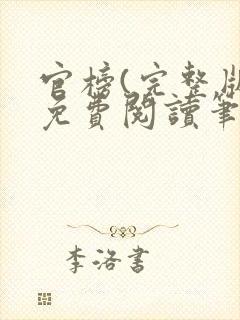 官榜(完整版
免費閱讀筆
李洛書